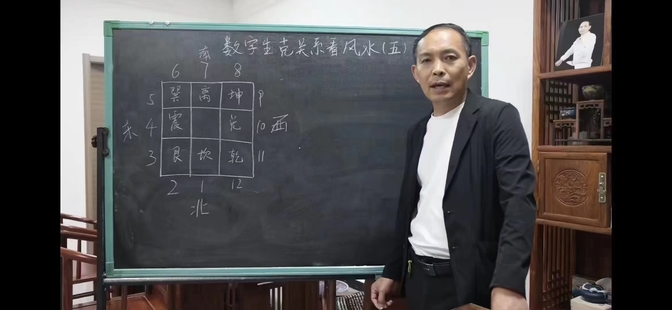 数字生克关系看风水(五)
南
6 7 8
5 巽 离 坤 9
东 4 震 兑 10 西
3 艮 坎 乾 11
2 1 12
北